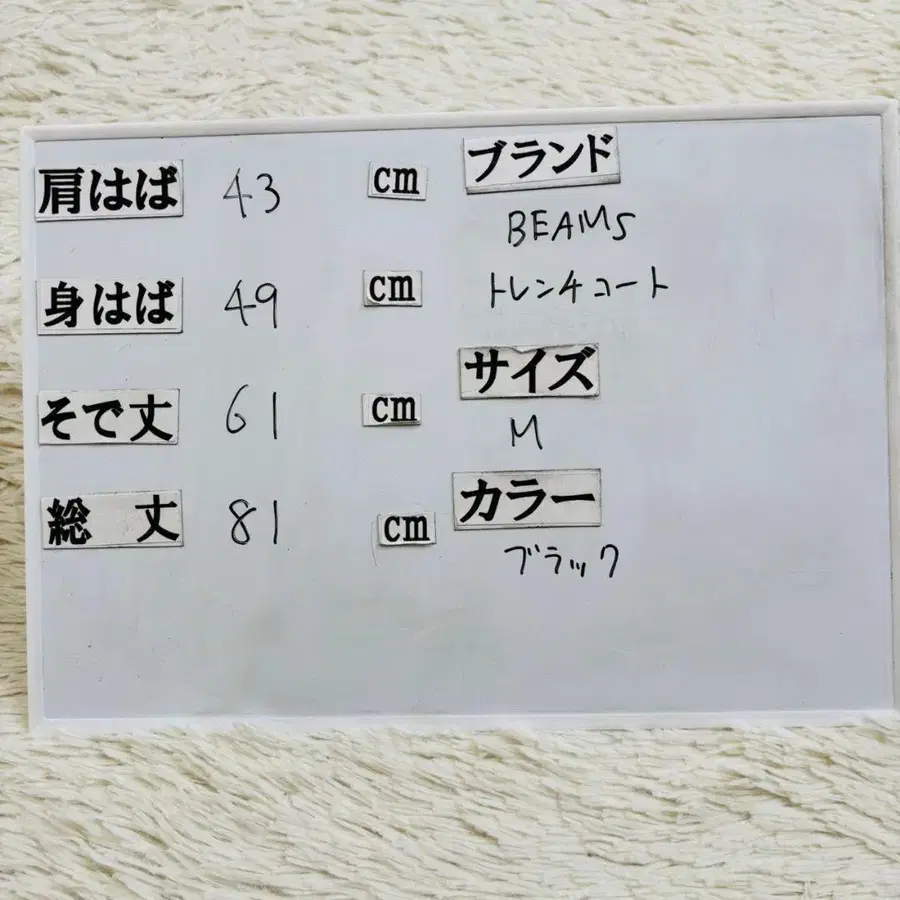 肩はば 43 cm
身はば 49 cm
そで丈 61 cm
総 丈 81 cm
ブランド
BEAMS
トレンチコート
サイズ
M
カラー
ブラック